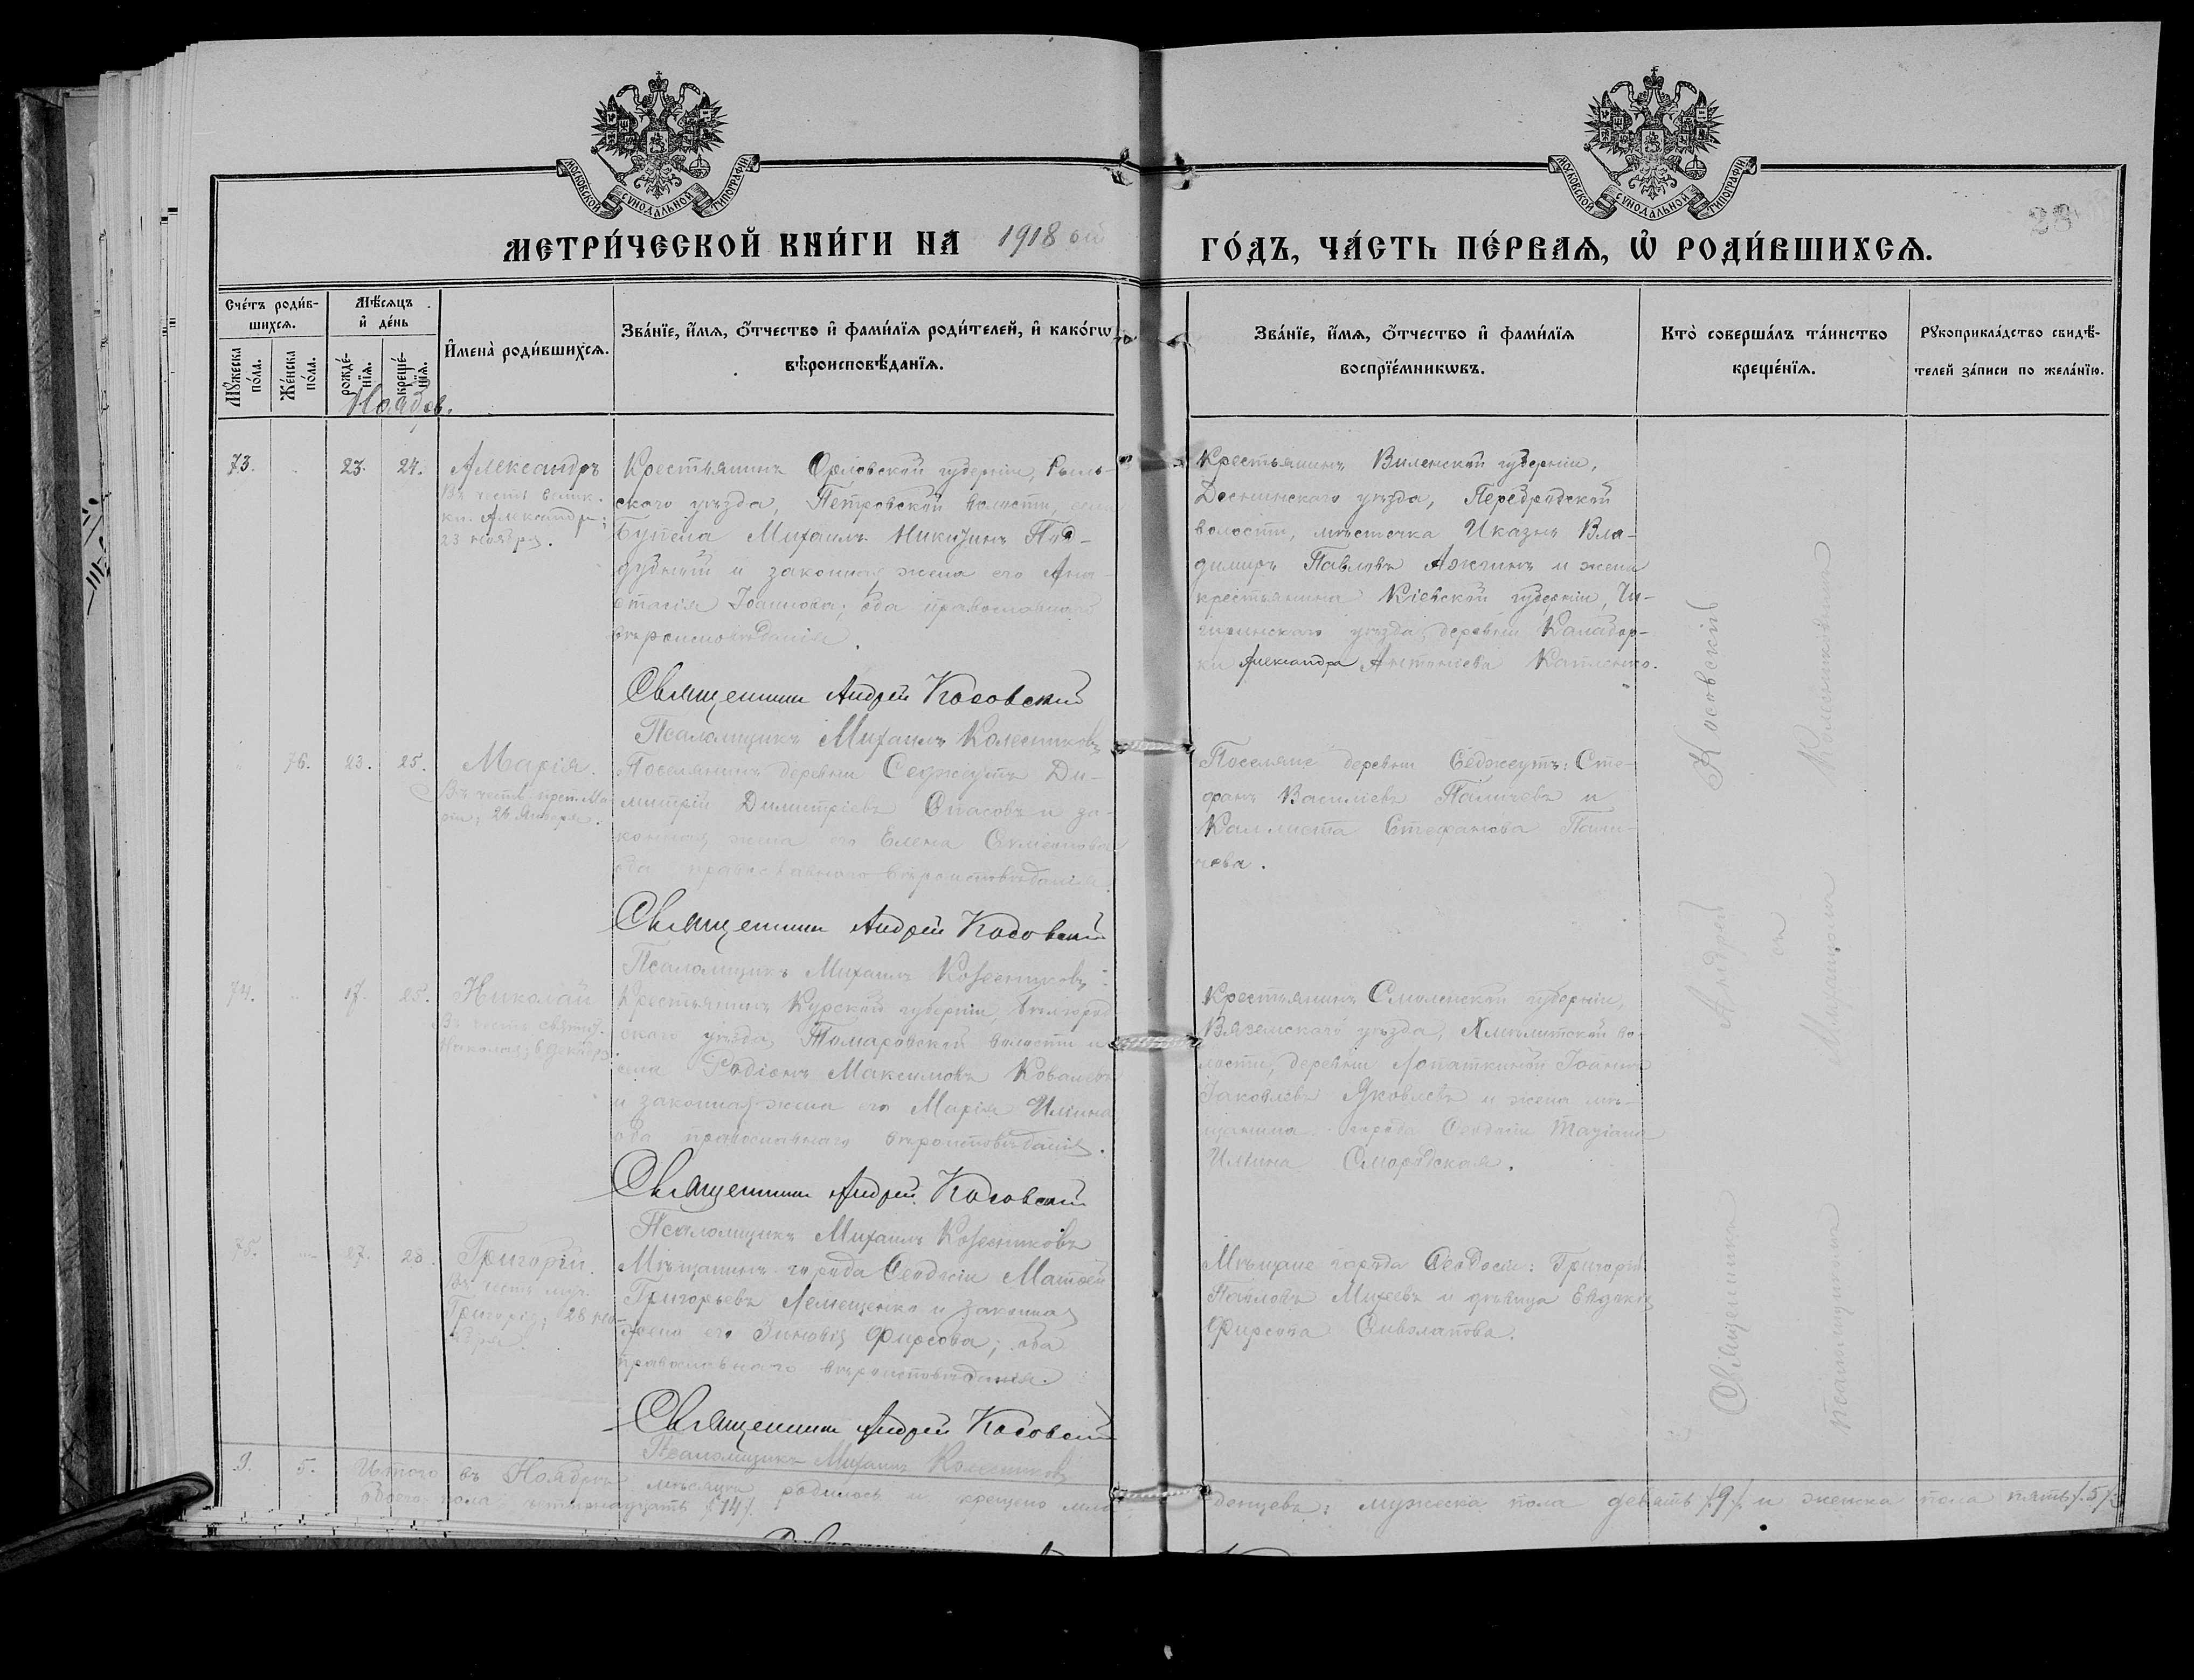 МОСКОВСКОЙ СѴНОДАЛЬНОЙ ТИПОГРАФІИ
МОСКОВСКОЙ СѴНОДАЛЬНОЙ ТИПОГРАФІИ
28
МЕТРИ́ЧЕСКОЙ КНИ́ГИ НА 1918 ый
ГО́ДЪ, ЧА́СТЬ ПЕ́РВАѦ, Ѡ҆ РОДИ́ВШИХСѦ.
Сче́тъ роди́в-
шихсѧ.
Мꙋ́жеска по́ла.
Же́нска по́ла.
Мѣ́сѧцъ
и҆ де́нь
рожде́-нїѧ.
креще́-нїѧ.
И҆мена̀ роди́вшихсѧ.
Зва́нїе, и҆́мѧ, ѻ҆́тчество и҆ фами́лїѧ роди́телей, и҆ како́гѡ
вѣроисповѣ́данїѧ.
Зва́нїе, и҆́мѧ, ѻ҆́тчество и҆ фами́лїѧ
воспрїе́мникѡвъ.
Кто̀ соверша́лъ та́инство
креще́нїѧ.
Рꙋкоприкла́дство свидѣ́-
телей за́писи по жела́нїю.
Ноябрь.
73. 23. 24. Александръ
Въ честь велик.
кн. Александра;
23 ноября.
Крестьянинъ Орловской губерніи,
скаго уѣзда, Петровской волости, села
Михаилъ Никитинъ Под-
дубный и законная жена его Ана-
стасія Іоаннова; оба православнаго
вѣроисповѣданія.
Священникъ Андрей Косовскій
Псаломщикъ Михаилъ Колесниковъ
Крестьянинъ Виленской губерніи,
уѣзда,
волости, мѣстечка Иказнь Вла-
димиръ Павловъ и жена
крестьянина Кіевской губерніи, Чи-
гиринскаго уѣзда, деревни
Александра Антоніева
76. 23. 25. Марія.
Въ честь преп. Ма-
ріи; 26 Января.
Поселянинъ деревни Седжеутъ Ди-
митрій Димитріевъ Спасовъ и за-
конная жена его Елена Симеонова
оба православнаго вѣроисповѣданія.
Священникъ Андрей Косовскій
Псаломщикъ Михаилъ Колесниковъ
Поселяне деревни Седжеутъ: Сте-
фанъ Василіевъ Паличевъ и
Каллиста Стефанова Пали-
чева.
74. 17. 25. Николай
Въ честь святит.
Николая; 6 декабря.
Крестьянинъ Курской губерніи, Бѣлгород-
скаго уѣзда, Томаровской волости и
села Родіонъ Максимовъ Ковалевъ
и законная жена его Марія Иліина
оба православнаго вѣроисповѣданія.
Священникъ Андрей Косовскій
Псаломщикъ Михаилъ Колесниковъ
Крестьянинъ Смоленской губерніи,
Вяземскаго уѣзда, Хмѣлитской во-
лости, деревни Лопаткиной Іоаннъ
Іаковлевъ Яковлевъ и жена мѣ-
щанина города Ѳеодосіи Татіана
Иліина
75. 27. 28. Григорій.
Въ честь муч.
Григорія; 28 но-
ября.
Мѣщанинъ города Ѳеодосіи Матѳей
Григорьевъ Лемещенко и законная
жена его Зиновія Фирсова; оба
православнаго вѣроисповѣданія.
Священникъ Андрей Косовскій
Псаломщикъ Михаилъ Колесниковъ
Мѣщане города Ѳеодосіи: Григорій
Павловъ Михеевъ и дѣвица Евдокія
Фирсова Сиволапова.
Священникъ Андрей Косовскій
съ
псаломщикомъ Михаиломъ Колесниковымъ
9. 5. Итого въ Ноябрѣ мѣсяцѣ родилось и крещено мла-
денцевъ: мужеска пола девять /9/ и женска пола пять /5/,
обоего пола четырнадцать /14/.